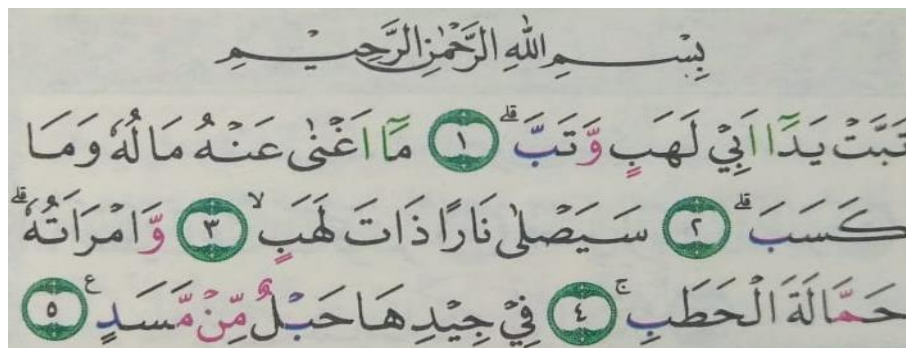 بِسْـــمِ اللّٰهِ الرَّحْمٰنِ الرَّحِيْـــمِ
تَبَّتْ يَدَآ اَبِيْ لَهَبٍ وَّتَبَّۗ ١ مَآ اَغْنٰى عَنْهُ مَالُهٗ وَمَا
كَسَبَۗ ٢ سَيَصْلٰى نَارًا ذَاتَ لَهَبٍۙ ٣ وَّامْرَاَتُهٗۗ
حَمَّالَةَ الْحَطَبِۚ ٤ فِيْ جِيْدِهَا حَبْلٌ مِّنْ مَّسَدٍ ࣖ ٥